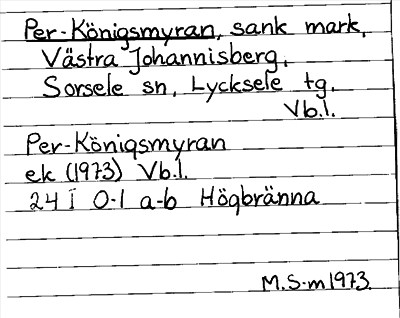 Per-Königsmyran, sank mark,
Västra Johannisberg.
Sorsele sn, Lycksele tg.
Vb.l.
Per-Königsmyran
ek (1973) Vb.l.
24 I 0-1 a-b Högbränna
M.S-m 1973